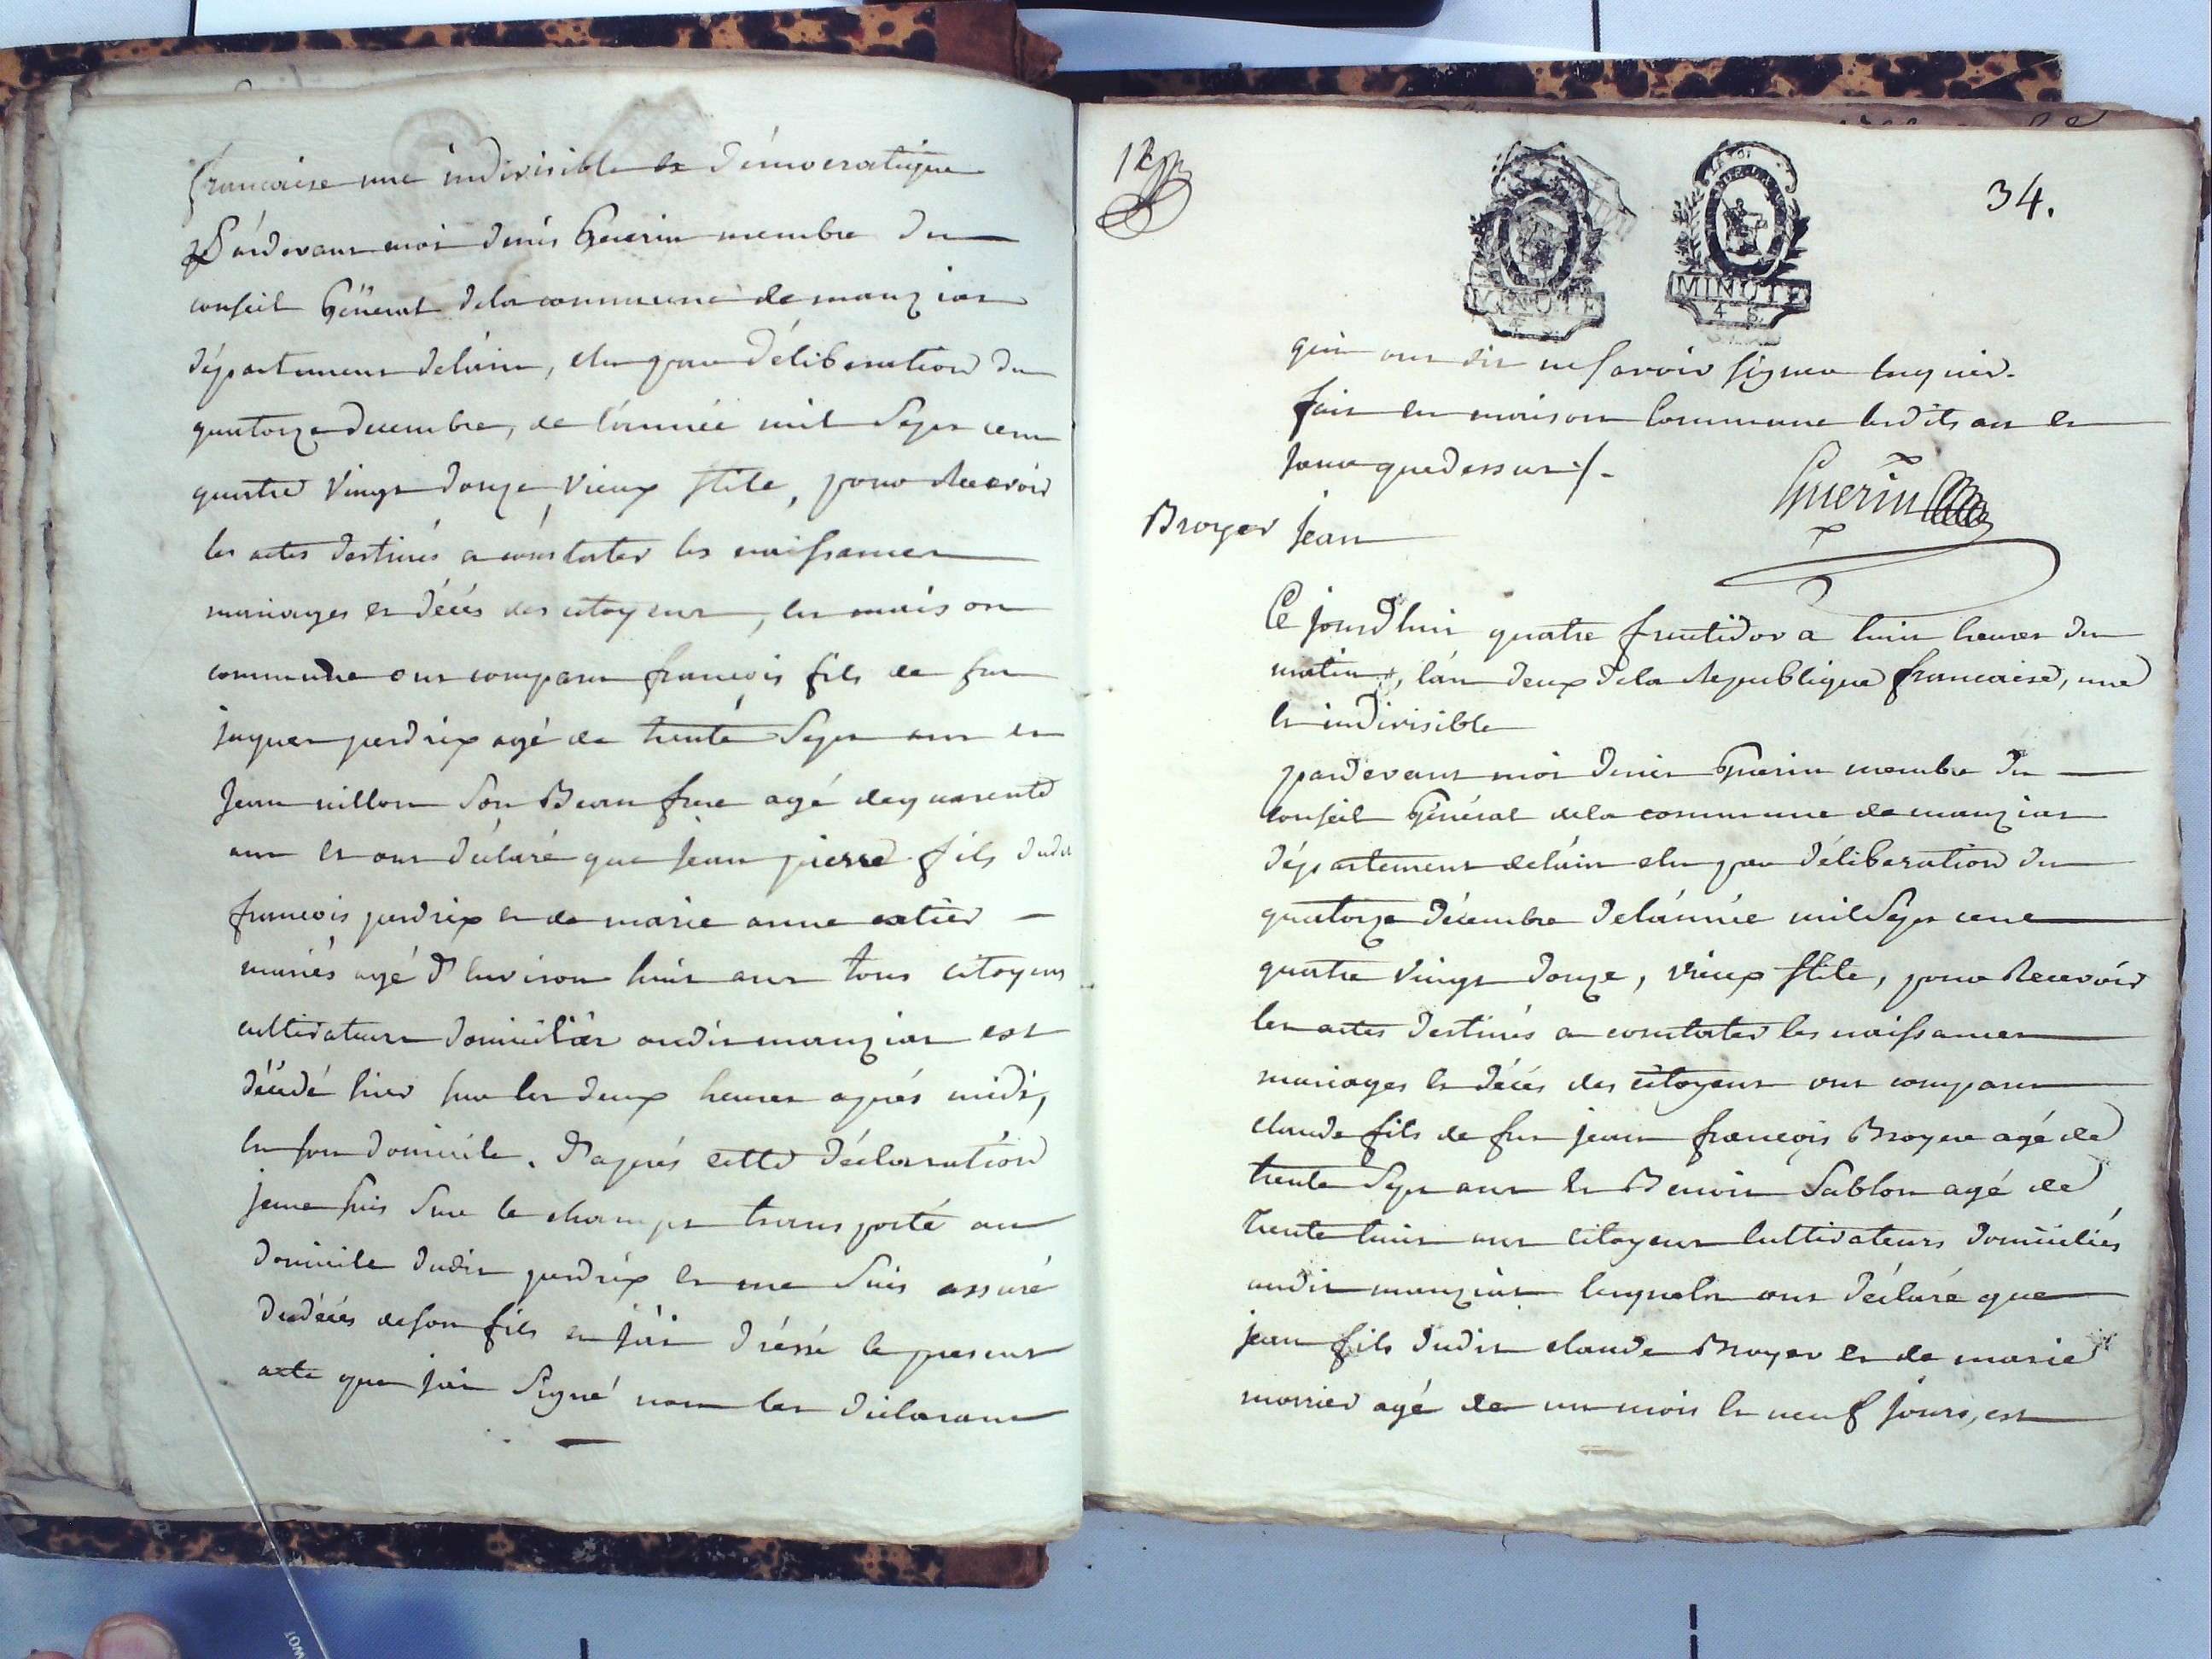 francaise une indivisible et démocratique
Pardevant moi denis Guerin membre du
conseil Général de la commune de manziat
département de láin, elu par déliberation du
quatorze decembre, de l'année mil Sept cent
quatre vingt douze, vieux stile, pour Recevoir
les actes destinés a constater les naissances
mariages et décés des citoyens, en maison
commune ont comparu françois fils de feu
jaques perdrix agé de trente Sept ans et
Jean nillon Son Beau frere agé de quarente
ans et ont déclaré que jean pierre fils dudit
francois perdrix et de marie anne catier
mariés agé d'environ huit ans tous citoyens
cultivateurs domiciliés audit manziat est
décédé hier sur les deux heures aprés midi,
en son domicile. d'aprés cette déclaration
je me suis Sur le champs transporté au
domicile dudit perdrix et me Suis assuré
du décés de son fils et j'ai dréssé le present
acte que j'ai Signé non les déclarants
12
34.
MINUTE
MINUTE
4 S.
qui ont dit ne Savoir signer enquis.
fait en maison Commune lesdits an et
jour que dessus ./.
Guerin
Broyer Jean
Ce jourd'hui quatre fructidor a huit heures du
matin, l'an deux de la Republique francaise, une
et indivisible
pardevant moi denis Guerin membre du
Conseil Général de la commune de manziat
département de láin elu par déliberation du
quatorze décembre de lánnée mil Sept cent
quatre vingt douze, vieux stile, pour Recevoir
les actes destinés a constater les naissances
mariages et décés des citoyens ont comparu
claude fils de feu jean françois Broyer agé de
trente Sept ans et Benoit Sablon agé de
trente huit ans citoyens Cultivateurs domiciliés
audit manziat lesquels ont déclaré que
jean fils dudit claude Broyer et de marie
morrier agé de un mois et neuf jours, est